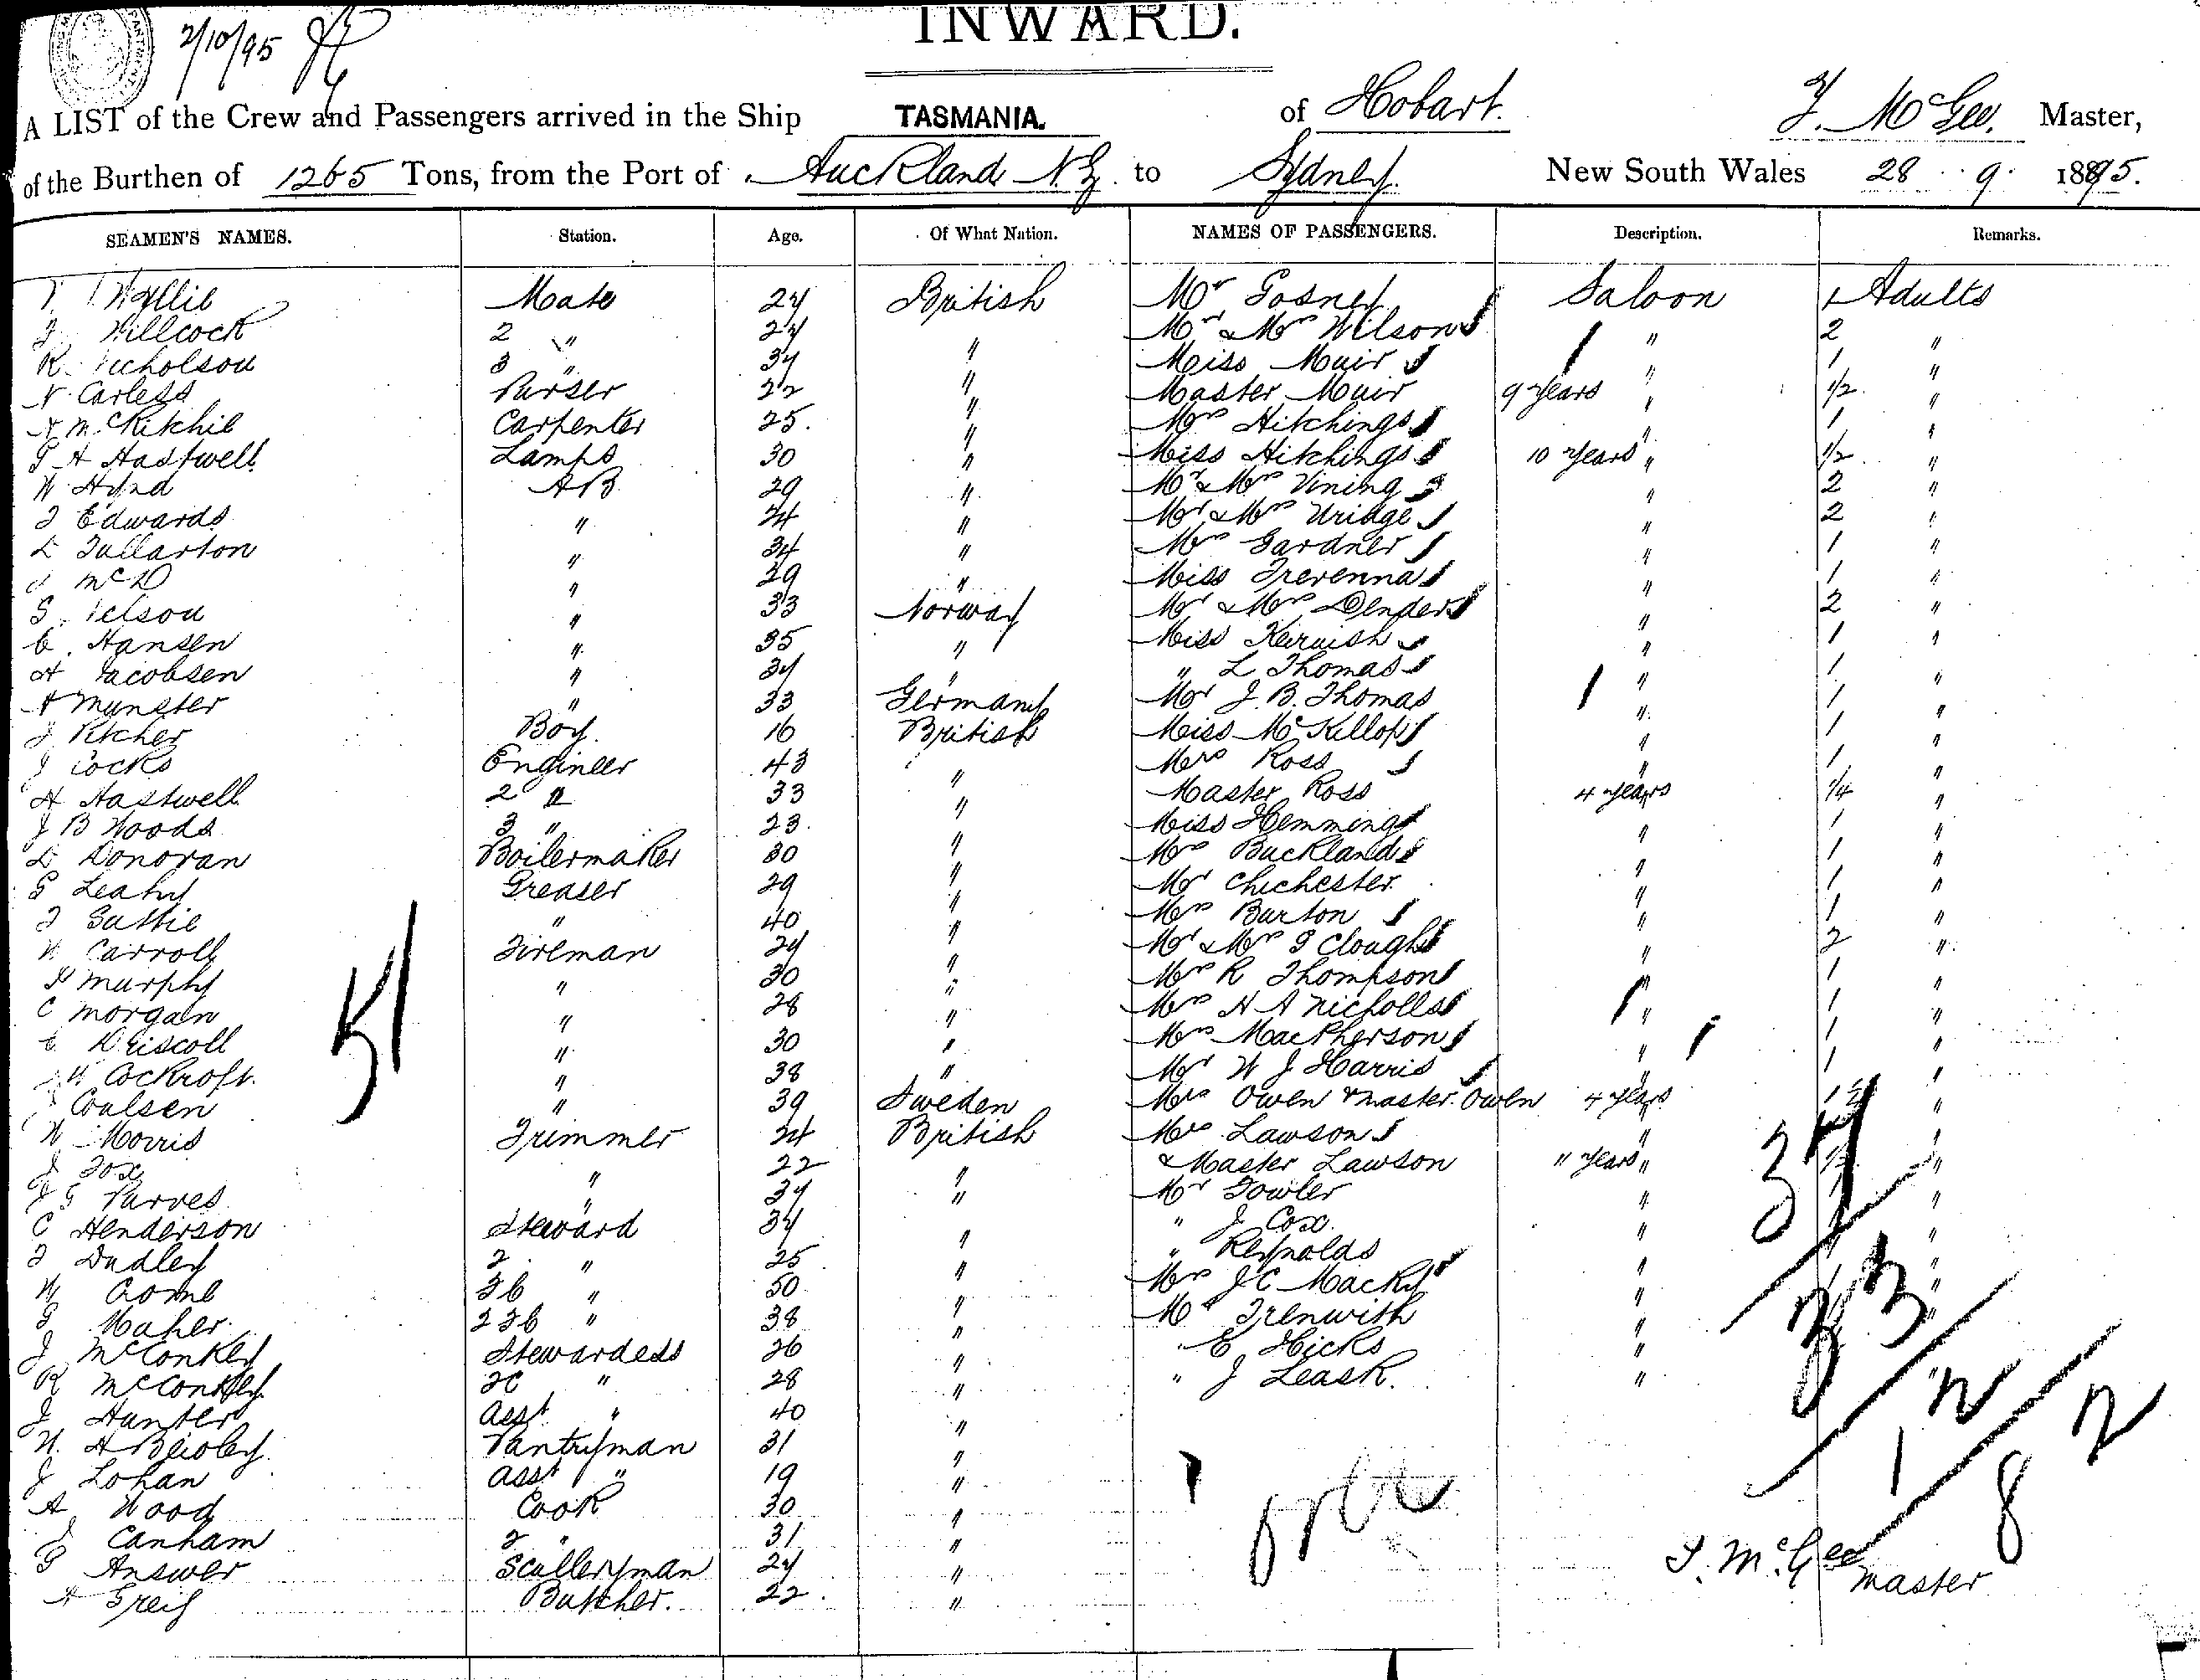 INWARD.
2/10/95
A LIST of the Crew and Passengers arrived in the Ship TASMANIA. of Hobart. McGee. Master,
of the Burthen of 1265 Tons, from the Port of Auckland N.Z. to Sydney. New South Wales 28 . 9 . 1895.
SEAMEN'S NAMES. Station. Age. Of What Nation. NAMES OF PASSENGERS. Description. Remarks.
Wyllie Mate 24 British Mr Gosney Saloon 1 Adults
Willcock 2 " 24 " Mr & Mrs Wilson " 2 "
R. Nicholson 3 " 34 " Miss Muir " 1 "
Carless Purser 22 " Master Muir 9 years " 1/2 "
McRitchie Carpenter 25. " Mrs Hitchings " 1 "
G A Hastwell Lamps 30 " Miss Hitchings 10 years " 1/2 "
W Hynd AB 29 " Mr & Mrs Vining " 2 "
Edwards " 24 " Mr & Mrs Uridge " 2 "
Fullarton " 34 " Mrs Gardner " 1 "
McD " 29 " Miss Trevenna " 1 "
Nelson " 33 Norway Mr & Mrs Denders " 2 "
C. Hansen " 35 " Miss " 1 "
A Jacobsen " 34 " " L Thomas " 1 "
A Munster " 33 Germany Mr J. B. Thomas " 1 "
J Pitcher Boy. 16 British Miss McKillop " 1 "
J Cocks Engineer 43 Mrs Ross " 1 "
A Hastwell 2 " 33 " Master Ross 4 years 1/4 "
J B Woods 3 " 23. " Miss Hemming " 1 "
Donovan Boilermaker 30 " Mrs Buckland " 1 "
Leahy Greaser 29 " Mr Chichester " 1 "
" 40 " Mrs Burton " 1 "
W Carroll Fireman 24 " Mr & Mrs Clough " 2 "
Murphy " 30 " Mrs R Thompson " 1 "
C Morgan " 28 " Mrs H A Nicholls " 1 "
Driscoll " 30 " Mrs MacPherson " 1 "
Cockroft. " 38 " Mr W J Harris " 1 "
Coulsen " 39 Sweden Mrs Owen & Master Owen 4 years "
W Morris Trimmer 24 British Mrs Lawson " "
J Fox " 22 " & Master Lawson 11 years " "
J G Purves " 34 " Mr Fowler " "
C Henderson Steward 34 " J Cox. " "
Dudley 2 " 25 " " Reynolds "
50 " Mrs J C Macky "
Maher. " 38 " Mr Trenwith "
J McConkey Stewardess 26 " E Hicks "
R McConkey " 28 " " J Leask. "
J Hunter Asst " 40 "
Pantryman 31 "
J Lohan Asst " 19 "
A Wood Cook 30 "
J Canham 2 " 31 "
Answer Sculleryman 24 "
A Greig Butcher. 22. "
51
37
33
12
82
McGee
Master